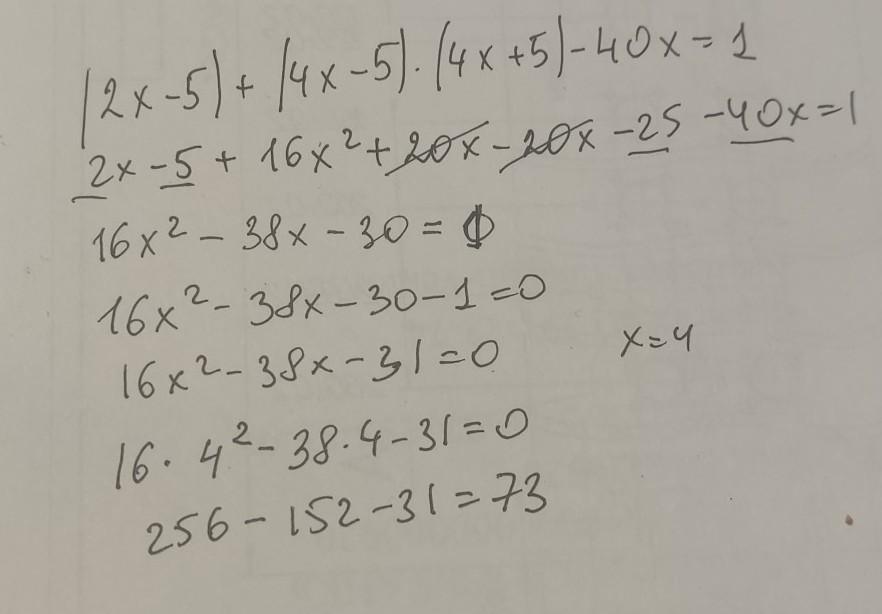 (2x-5)+(4x-5)·(4x+5)-40x=1
2x-5+16x²+20x-20x-25-40x=1
16x²-38x-30=1
16x²-38x-30-1=0
16x²-38x-31=0
x=4
16·4²-38·4-31=0
256-152-31=73